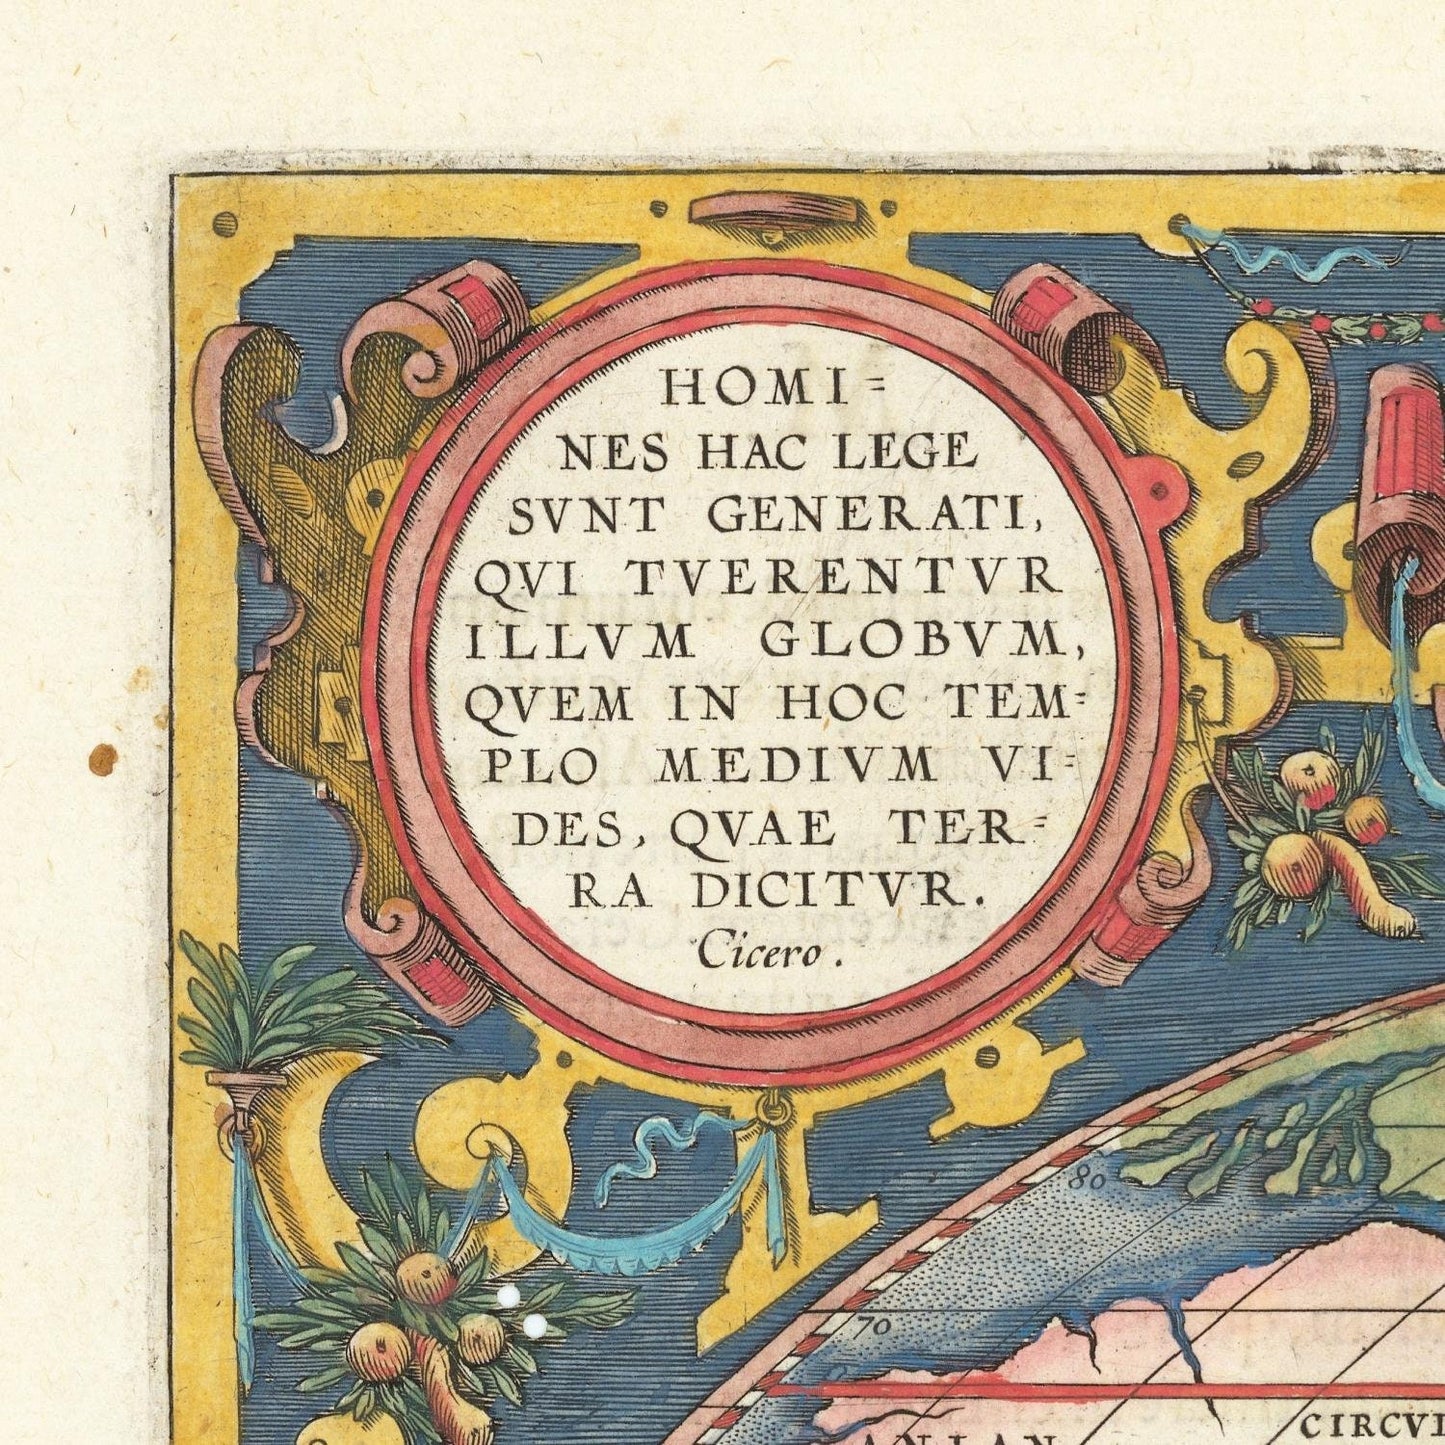 HOMI=
NES HAC LEGE
SVNT GENERATI,
QVI TVERENTVR
ILLVM GLOBVM,
QVEM IN HOC TEM=
PLO MEDIVM VI=
DES, QVAE TER=
RA DICITVR.
Cicero.
80
70
CIRCV
ANIAN